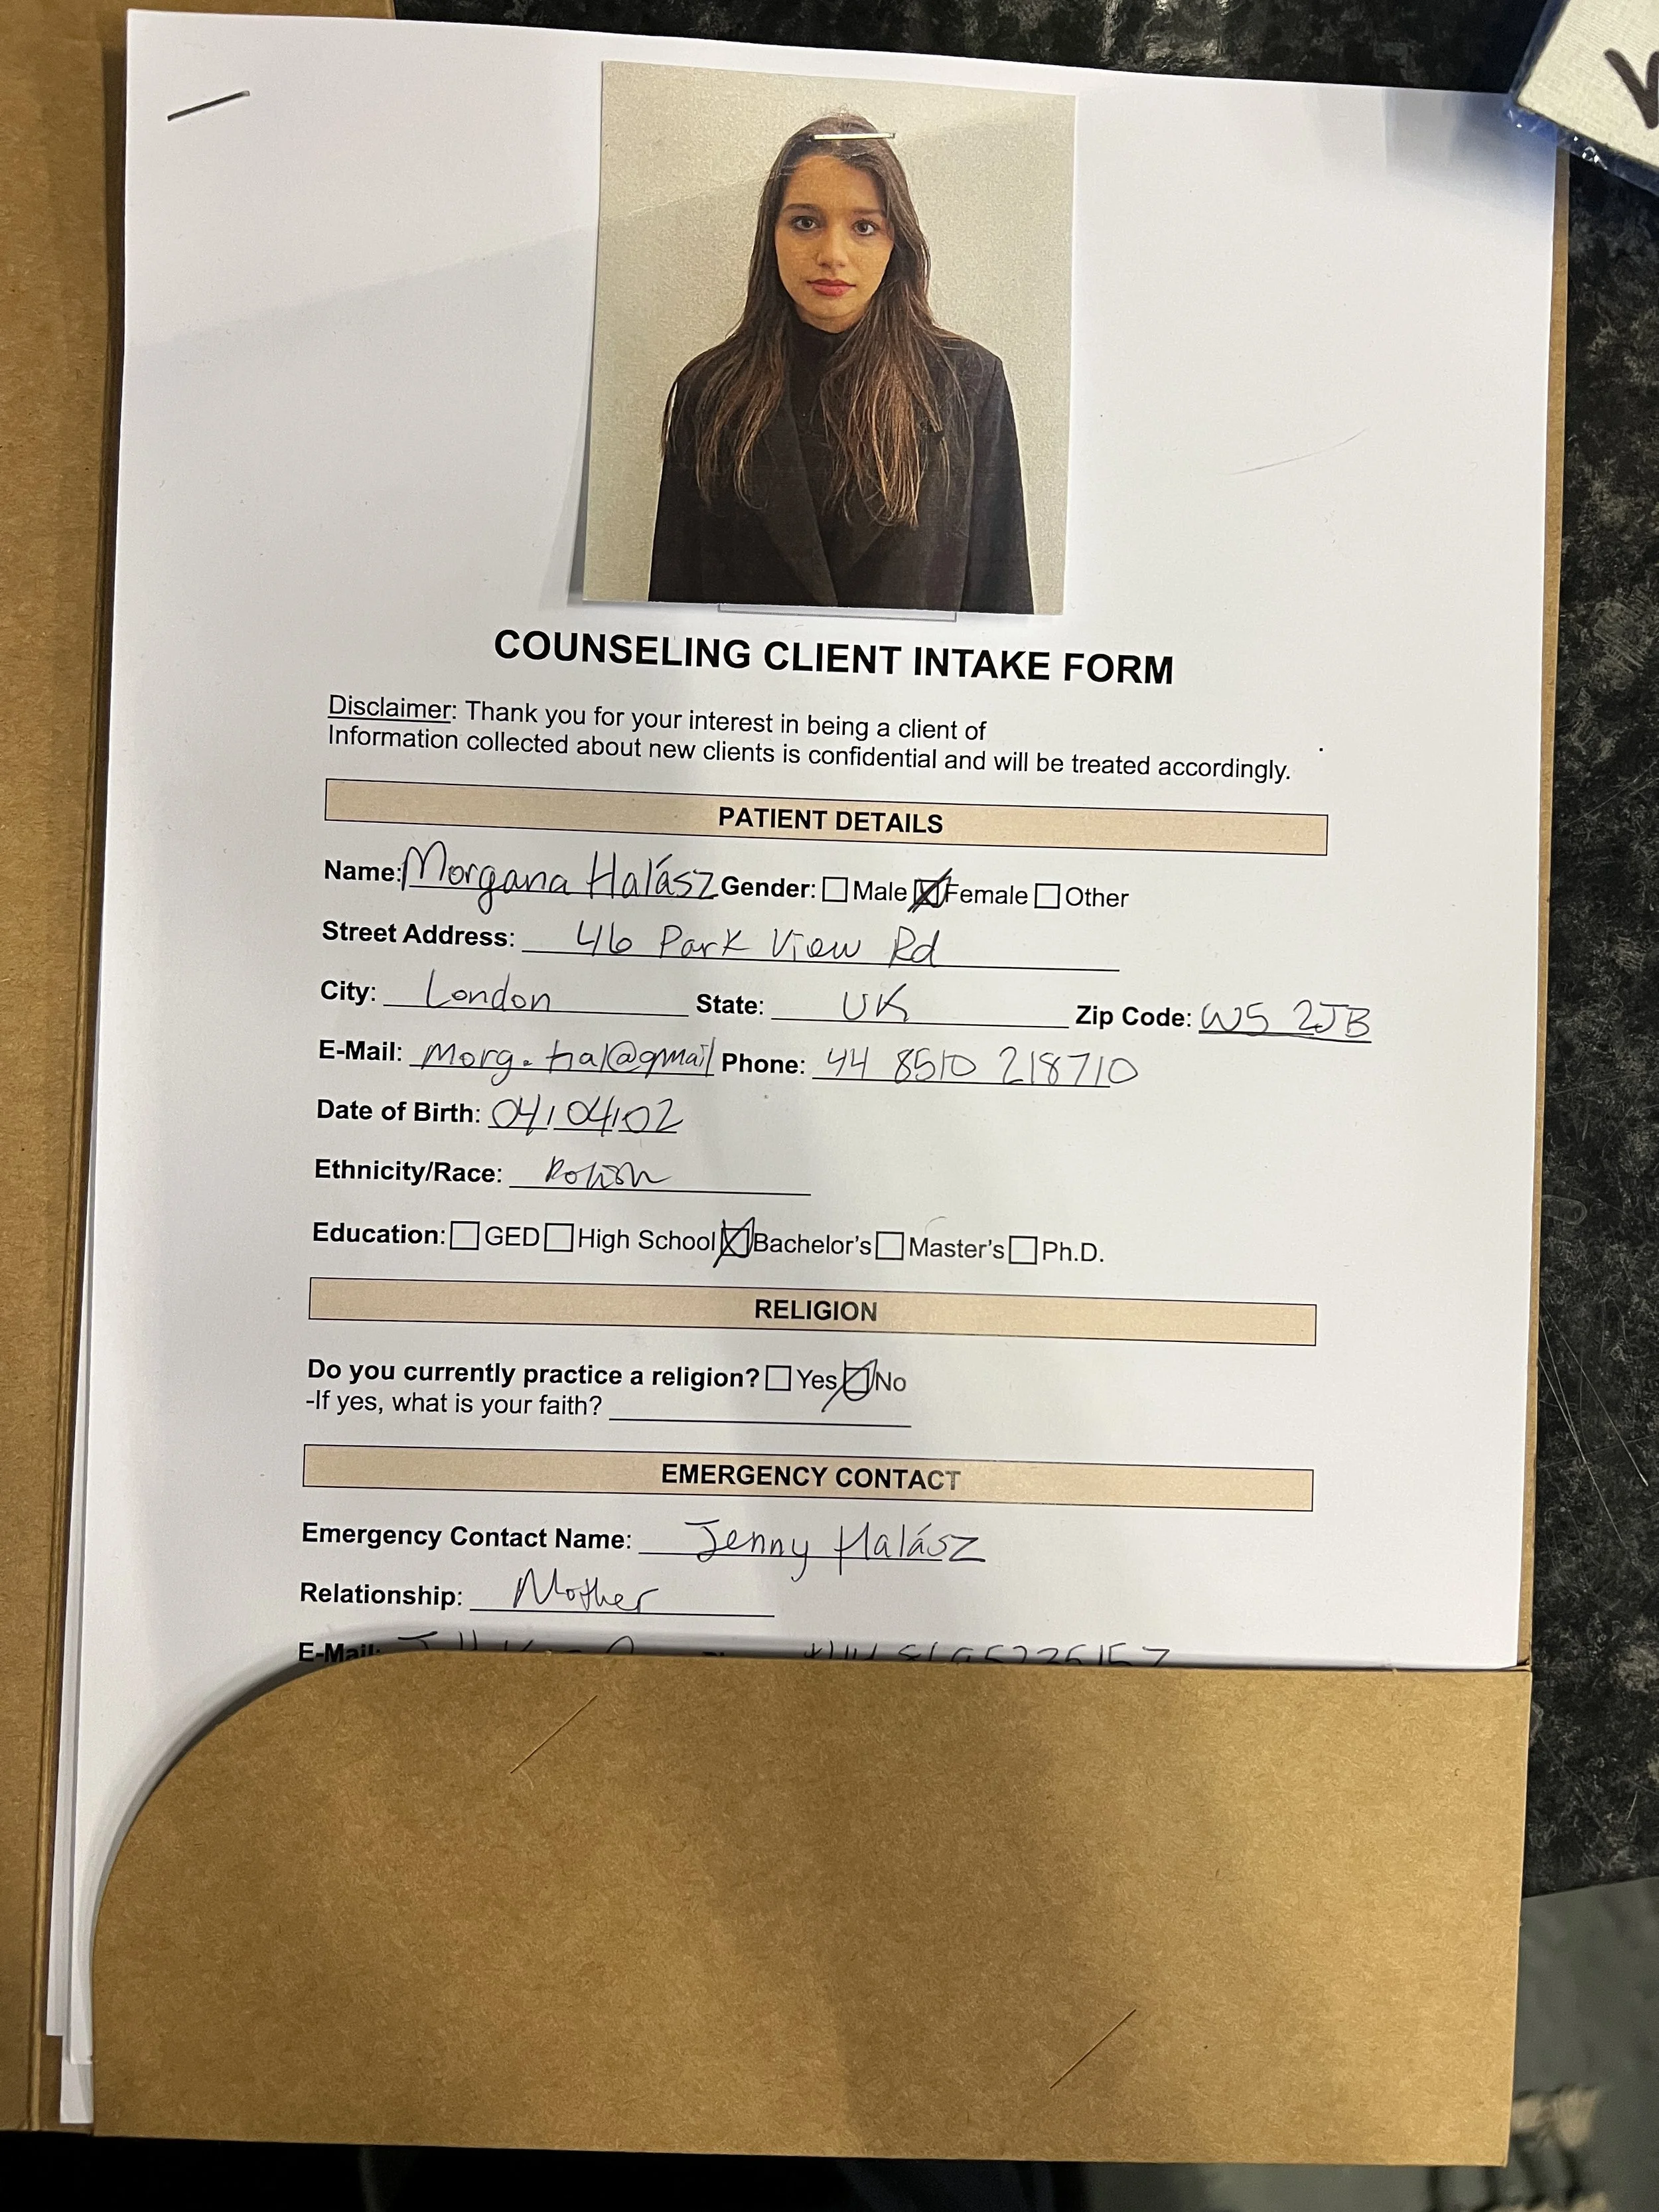 COUNSELING CLIENT INTAKE FORM
Disclaimer: Thank you for your interest in being a client of
Information collected about new clients is confidential and will be treated accordingly.
PATIENT DETAILS
Name: Morgana Halász Gender: Male Female Other
Street Address: 46 Park View Rd
City: London State: UK Zip Code: W5 2JB
E-Mail: Morg.hal@gmail Phone: 44 8510 218710
Date of Birth: 04/04/02
Ethnicity/Race: Polish
Education: GED High School Bachelor's Master's Ph.D.
RELIGION
Do you currently practice a religion? Yes No
-If yes, what is your faith?
EMERGENCY CONTACT
Emergency Contact Name: Jenny Halász
Relationship: Mother
E-Mail: